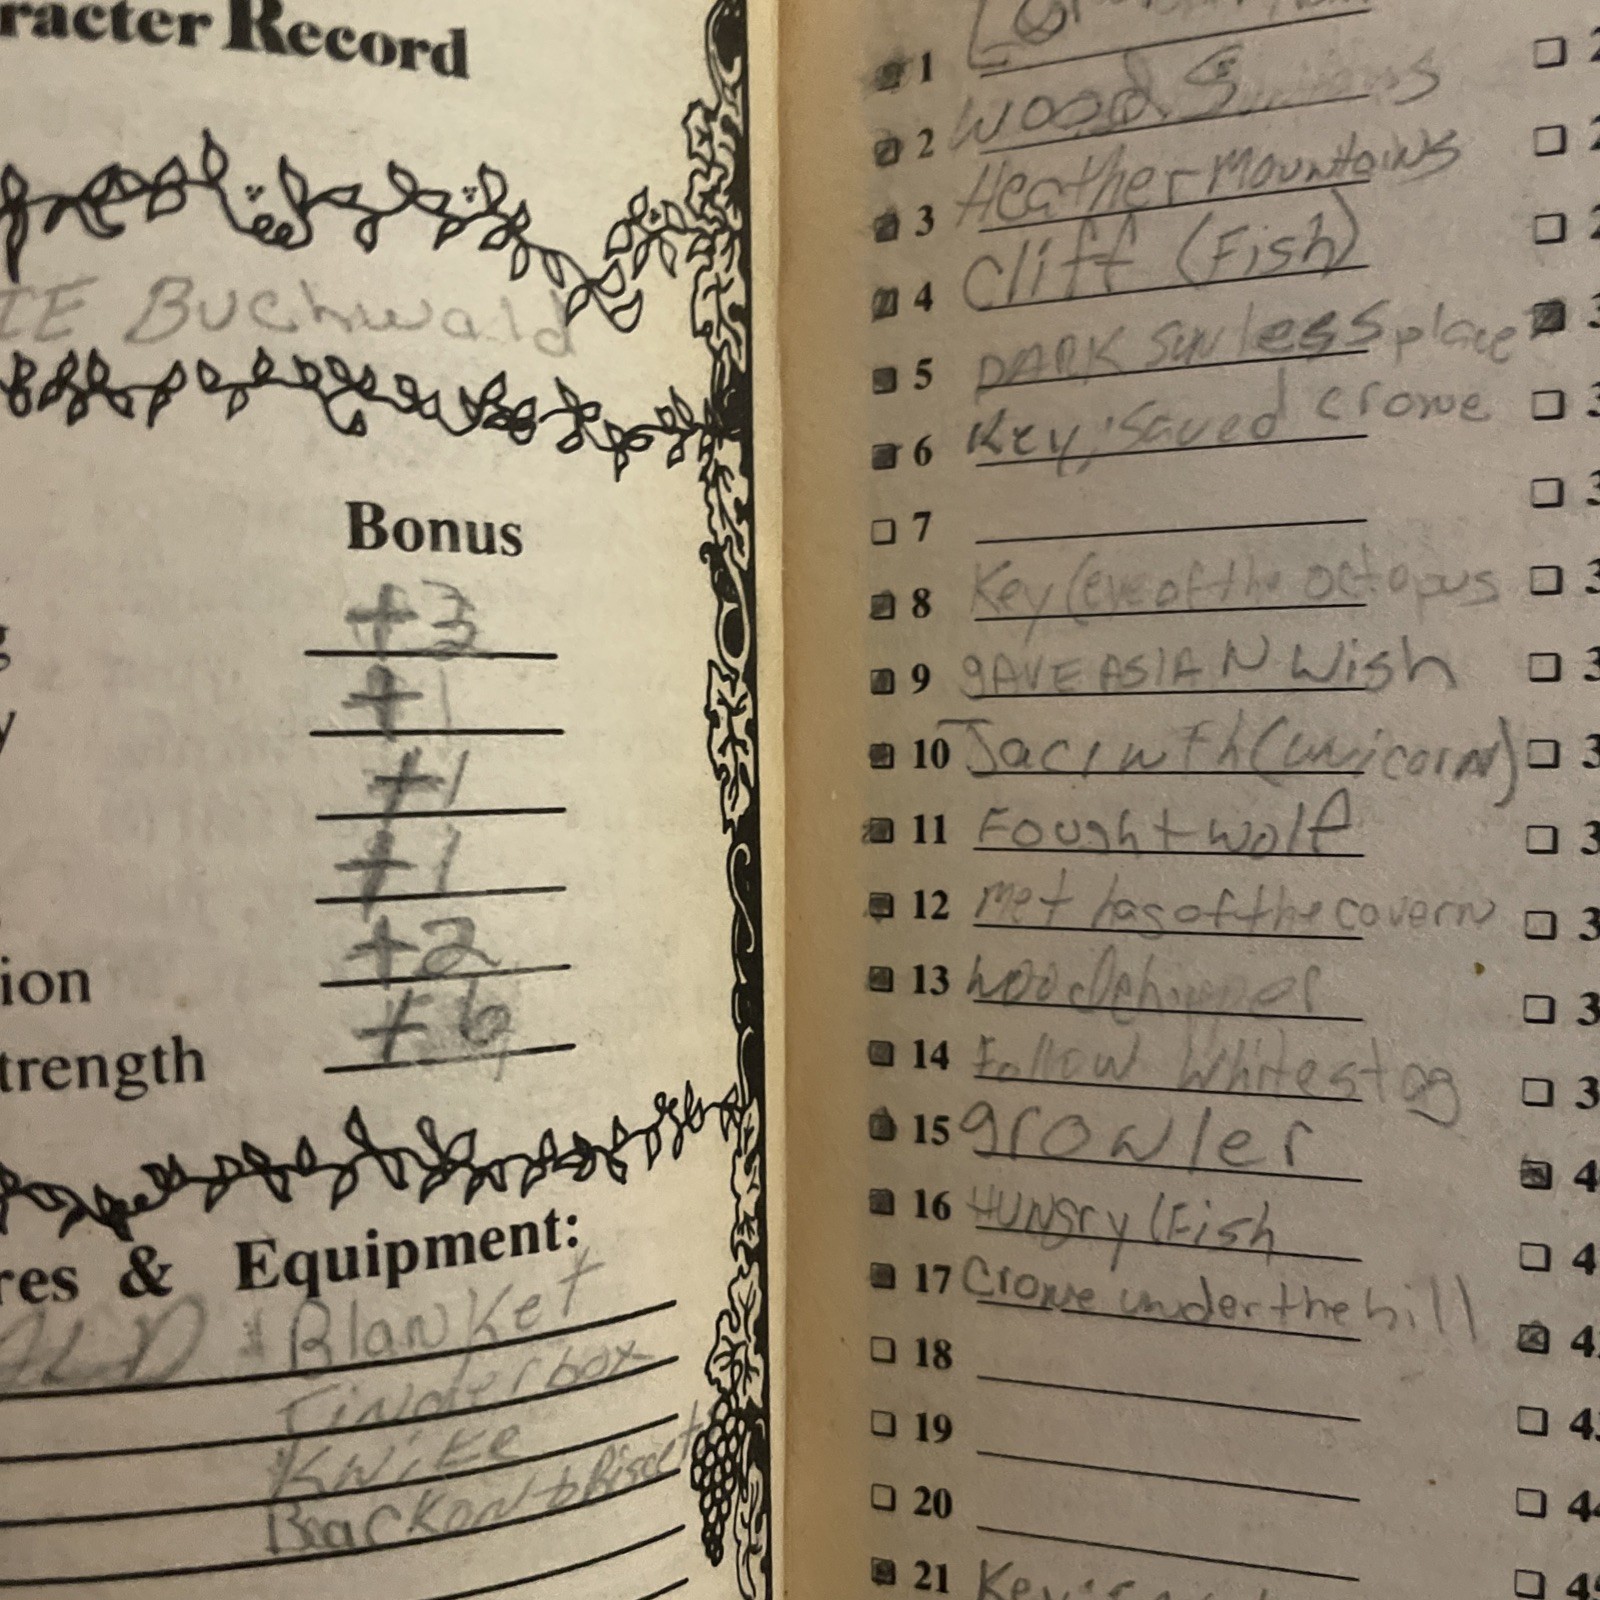 racter Record
IE Buchwald
Bonus
+3
+1
+1
+1
ion +2
trength +6
res & Equipment:
Blanket
Tinderbox
Knife
1
2 Woods
3 Heather Mountains
4 Cliff (Fish)
5 DARK sunless place
6 Key; Saved crowe
7
8 Key (eye of the octopus
9 gAVE ASIAN Wish
10 Jacinth (unicorn)
11 Fought wolf
12 Met has of the cavern
13 woodchipper
14 Follow whitestag
15 growler
16 HUNGry (Fish
17 Crowe under the hill
18
19
20
21 Key